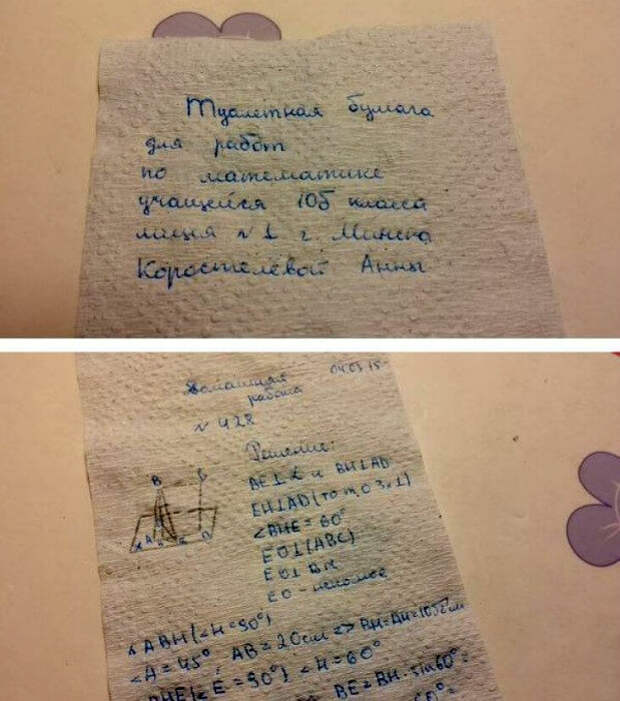 Туалетная бумага
для работ
по математике
учащейся 10б класса
лицея №1 г. Минска
Коростелёвой Анны
Домашняя
работа
04.03.15
№ 428
Решение:
BE⊥α и BH⊥AD
EH⊥AD (по т. о 3⊥)
∠BHE = 60°
EO⊥(ABC)
EO⊥BH
EO - искомое
B
A
α
ABH (∠H=90°)
∠A = 45°, AB = 20см => BH=AH=10√2 см
BHE (∠E = 90°) ∠H = 60°
BE = BH · sin60° =